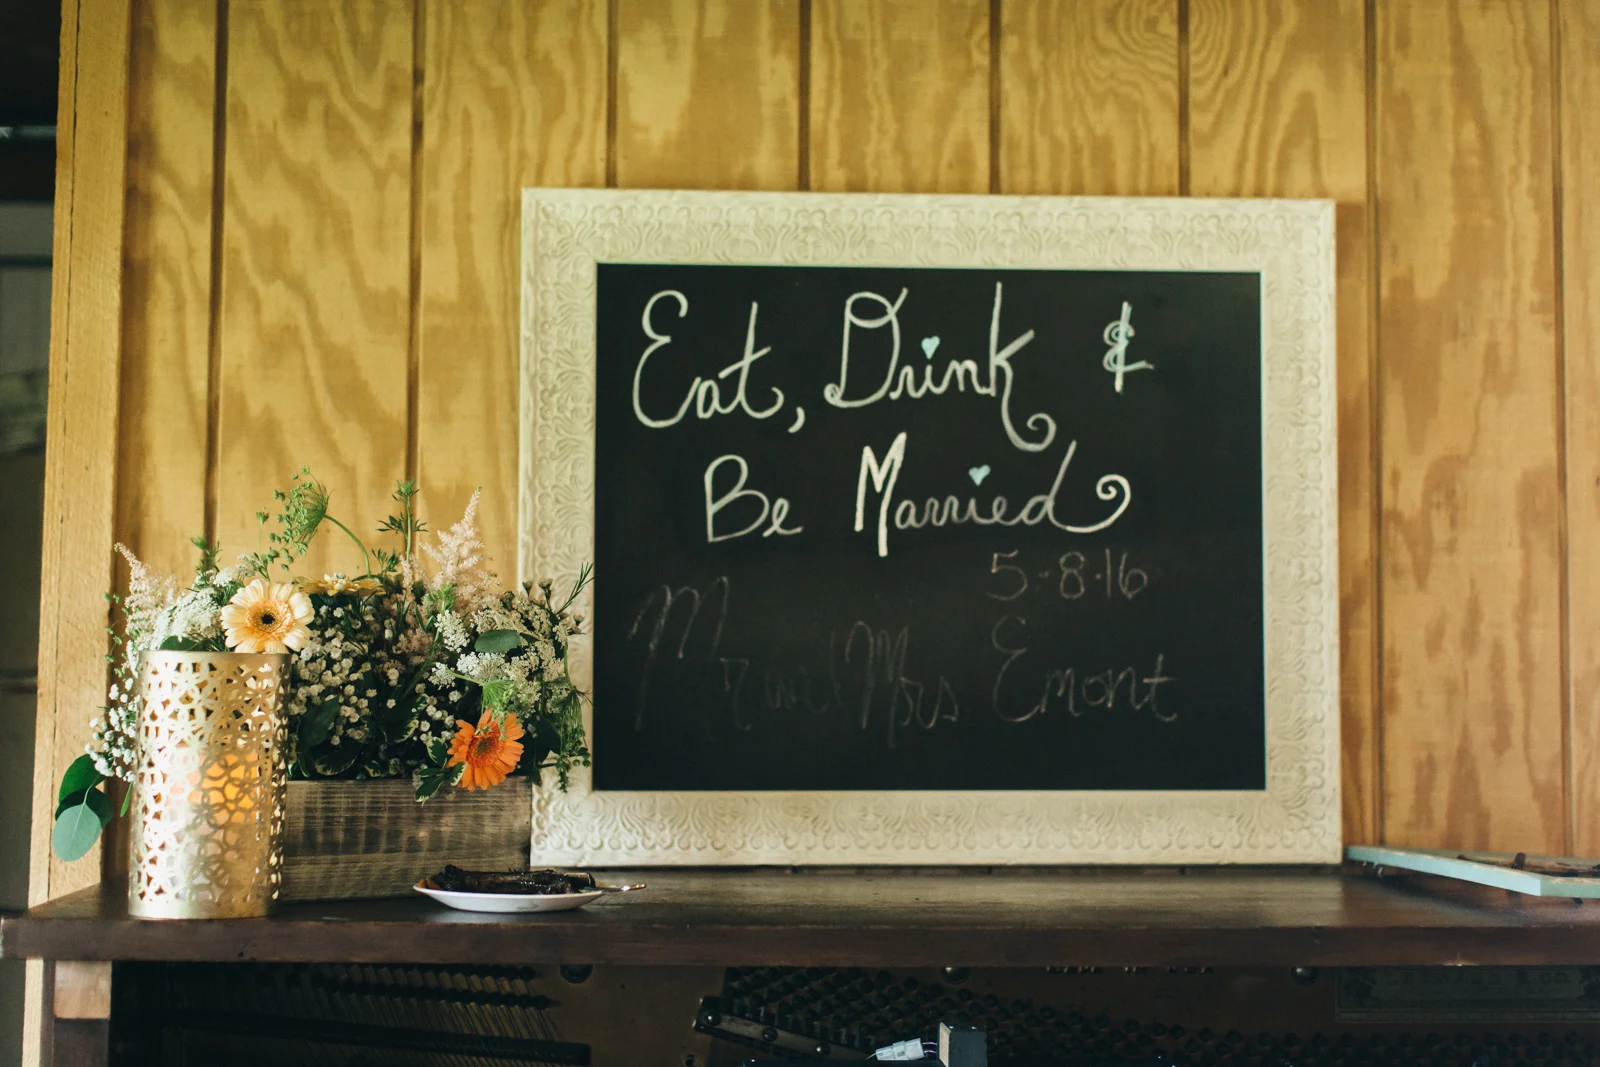 Eat, Drink &
Be Married
5-8-16
Mr and Mrs. Emont